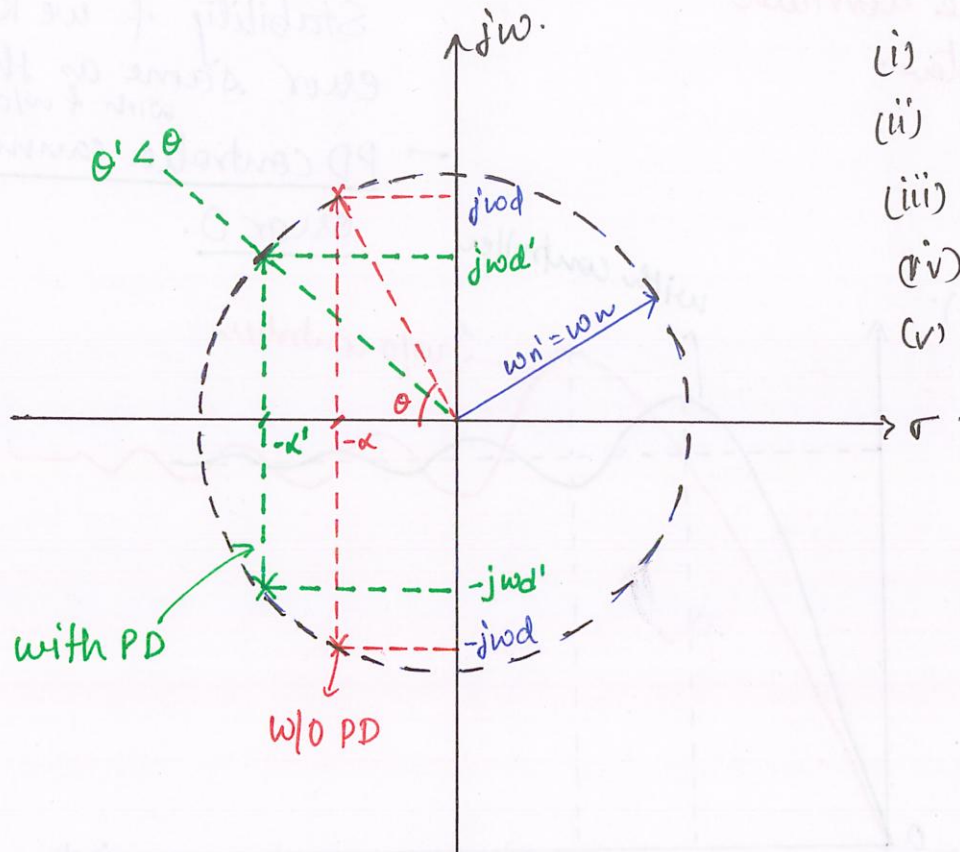 jω.
(i)
(ii)
(iii)
(iv)
(v)
θ' < θ
jωd
jωd'
ωn' = ωn
θ
-α'
-α
σ
-jωd'
-jωd
with PD
W/O PD